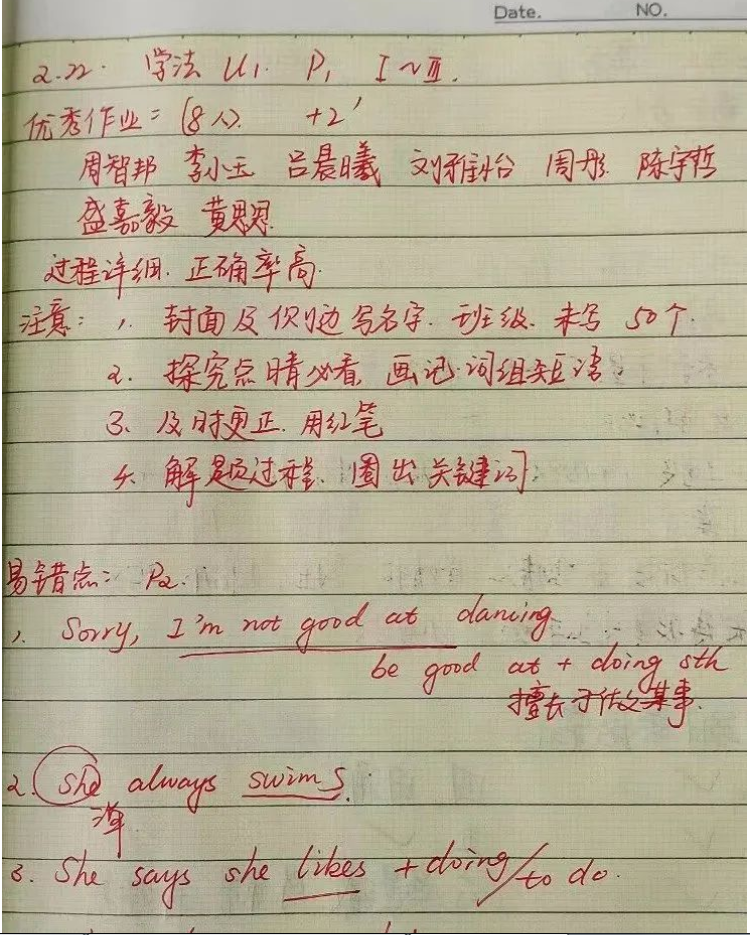 Date. NO.
2.22. 学法 U1. P1 I~III.
优秀作业:(8人). +2'
周智邦 李小玉 吕晨曦 刘雅怡 周彤 陈宇哲
盛嘉毅 黄思思
过程详细. 正确率高.
注意: 1. 封面及侧边写名字. 班级. 未写 50个.
2. 探究点睛必看, 画记.词组短语.
3. 及时更正. 用红笔
4. 解题过程. 圈出关键词
易错点: P2.
1. Sorry, I'm not good at dancing
be good at + doing sth
擅长于做某事.
2. she always swims.
单
3. She says she likes + doing/to do.